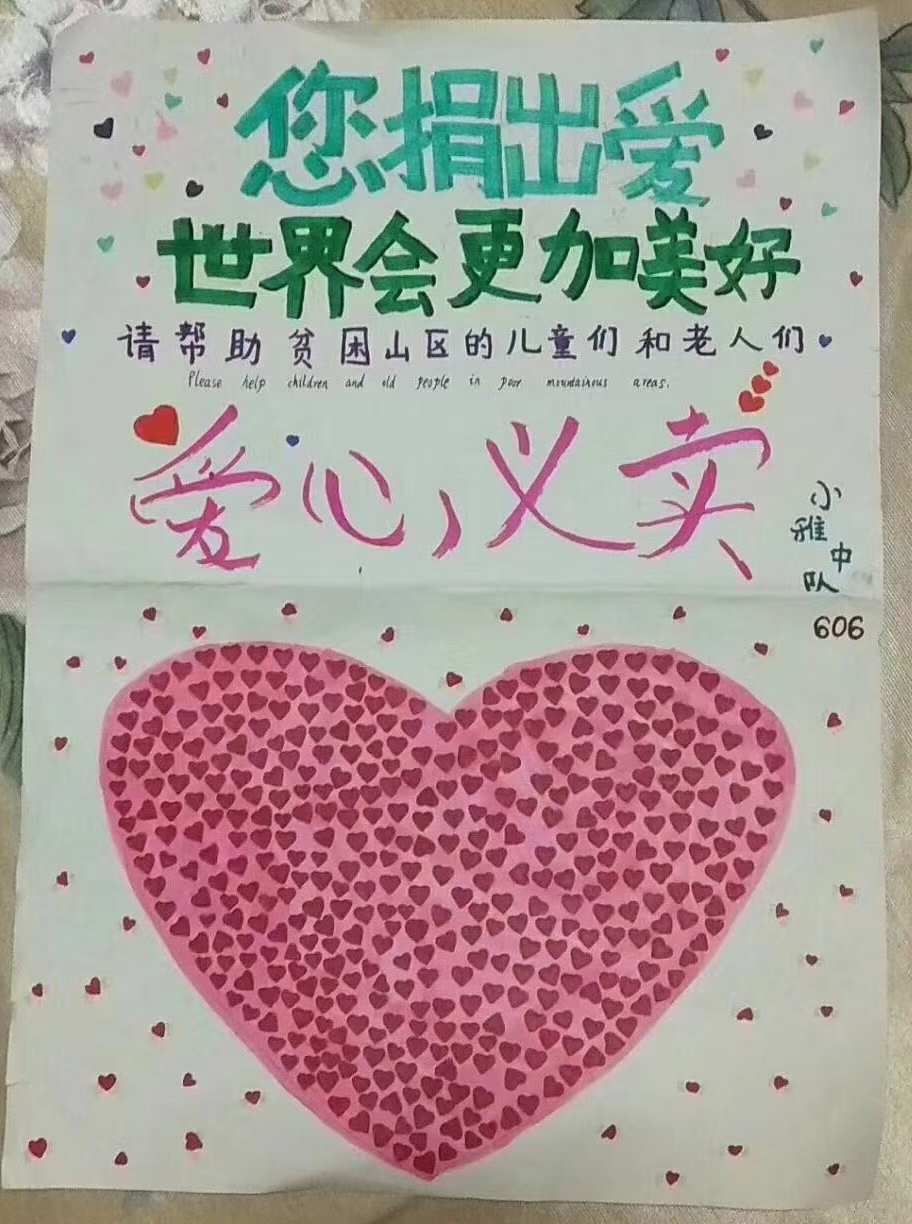 您捐出爱
世界会更加美好
请帮助贫困山区的儿童们和老人们
Please help children and old people in poor mountainous areas.
爱心义卖
小雅中队
606